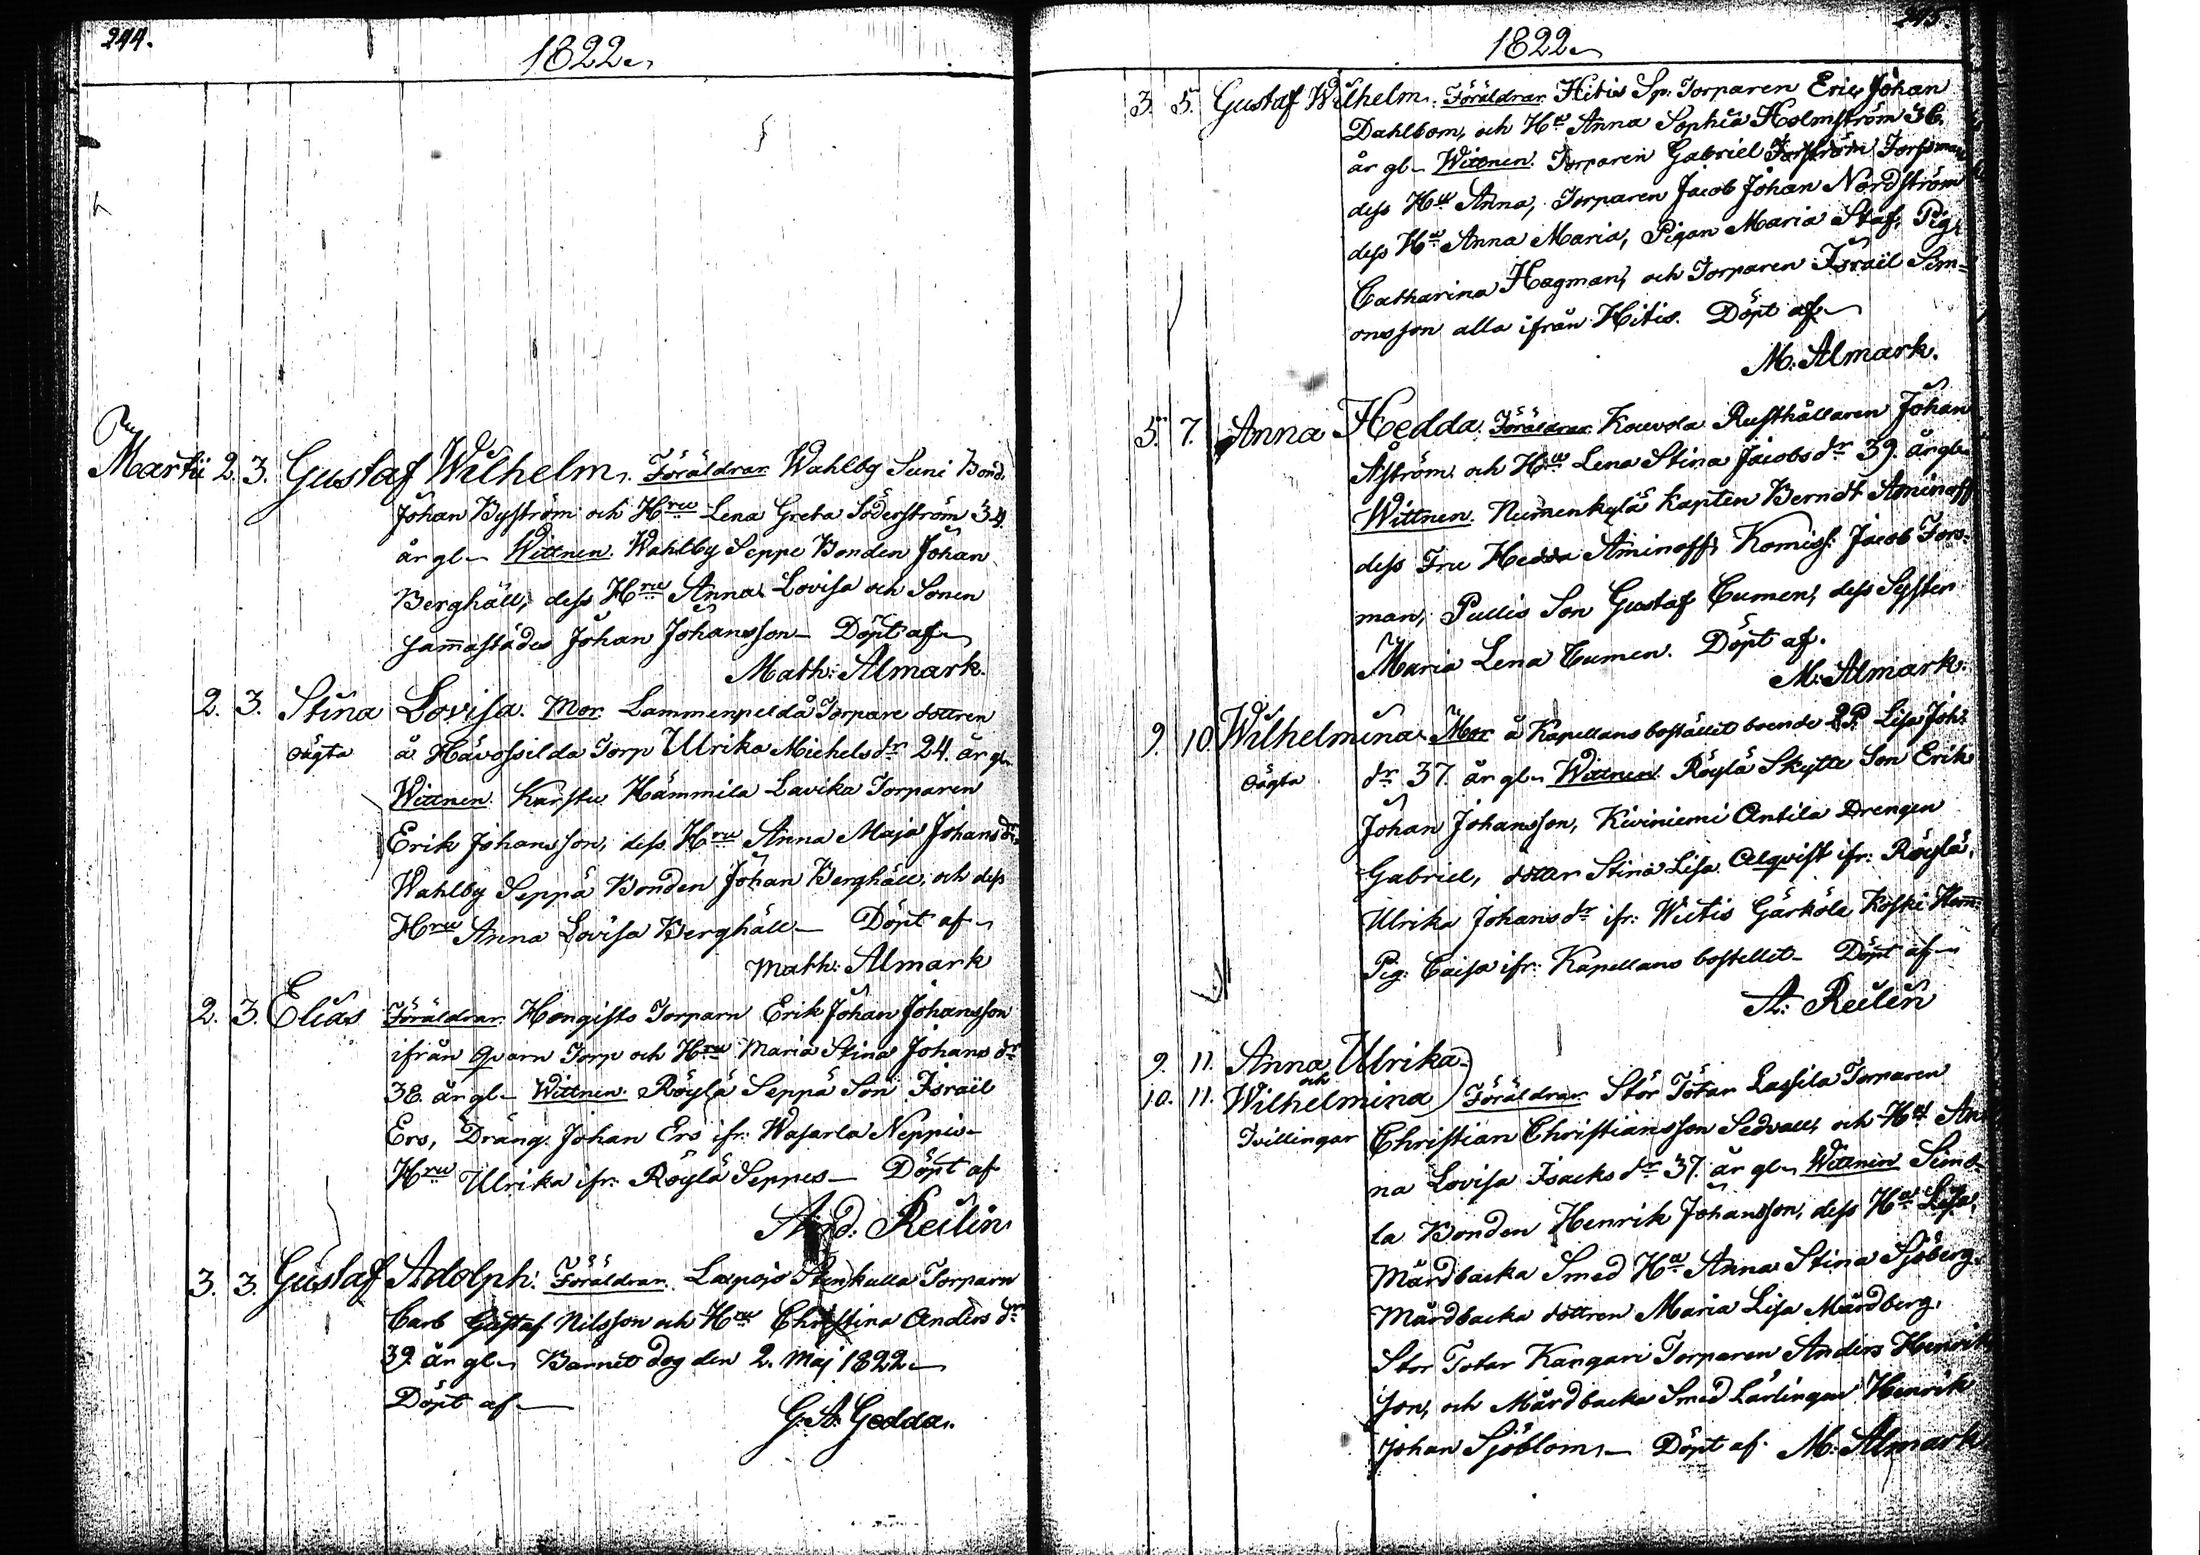 244.
1822.
Martii 2. 3. Gustaf Wilhelm. Föräldrar Wahlby Suni Bond.
Johan Byström och Hru Lena Greta Söderström 34
år gl. Wittnen. Wahlby Seppe Bonden Johan
Berghäll, dess Hru Anna Lovisa och Sonen
sam̄astädes Johan Johansson Döpt af
Math: Almark.
2. 3. Stina Lovisa. Mor. Lammenpeldå Torpare dottren
oägta å Hävossilda Torp Ulrika Michels dr 24. år gl.
Wittnen. Karstu Hämmila Lavika Torparen
Erik Johansson, dess Hru Anna Maja Johans dr
Wahlby Seppä Bonden Johan Berghäll, och dess
Hru Anna Lovisa Berghäll Döpt af
Math: Almark
2. 3. Elias Föräldrar. Hongisto Torparn Erik Johan Johansson
ifrån Qvarn Torp och Hru Maria Stina Johans dr
38. år gl. Wittnen. Röylä Seppä Son Israël
Ers, Dräng. Johan Ers ifr: Wasarla Neppis
Hru Ulrika ifr: Röylä Seppes Döpt af
And. Reilin
3. 3. Gustaf Adolph. Föräldrar. Laxpojo Stenkulla Torparn
Carl Gustaf Nilsson och Hru Christina Anders dr
39 år gl. Barnet dog den 2. Maj 1822
Döpt af
G. A. Gedda.
245.
1822
3. 5. Gustaf Wilhelm. Föräldrar Hitis Sp. Torparen Eric Johan
Dahlbom, och Hu Anna Sophia Holmström 36.
år gl. Wittnen. Torparen Gabriel Forsström Forssman
dess Hu Anna, Torparen Jacob Johan Nordström
dess Hu Anna Maria, Pigan Maria Staf, Pig.
Catharina Hagman, och Torparen Israël Sim-
onsson alla ifrån Hitis. Döpt af
M. Almark.
5. 7. Anna Hedda. Föräldrar Kouvola Rusthållaren Johan
Åström och Hu Lena Stina Jacobs dr 39. år gl.
Wittnen. Numenkylä Kapten Berndt Aminoff
dess Fru Hedda Aminoff, Komiss: Jacob Fors-
man, Pullis Son Gustaf Cumen, dess Syster
Maria Lena Cumen. Döpt af.
M. Almark.
9. 10 Wilhelmina. Mor å Kapellans bostället boende Lisa Joh:
oägta dr 37. år gl. Wittnen. Röylä Skytte Son Erik
Johan Johansson, Kiviniemi Antila Drengen
Gabriel, dotter Stina Lisa Alqvist ifr: Röylä,
Ulrika Johans dr ifr: Wictis Gärkölä Koski Hem:
Pig: Caisa ifr: Kapellans bostellet Döpt af
A: Reilin
9. 11. Anna Ulrika
och
10. 11. Wilhelmina Föräldrar Stor Totar Lassila Torparen
Tvillingar Christian Christiansson Sedvall, och Hu An
na Lovisa Isacks dr 37. år gl. Wittnen Simo-
la Bonden Henrik Johansson, dess Hu Lisa,
Mårdbacka Smed Hu Anna Stina Sjöberg.
Mårdbacka dottren Maria Lisa Mårdberg.
Stor Totar Kangari Torparen Anders Henrik
son, och Mårdbacka Smed Lärlingen Henrik
Johan Sjöblom. Döpt af. M: Almark